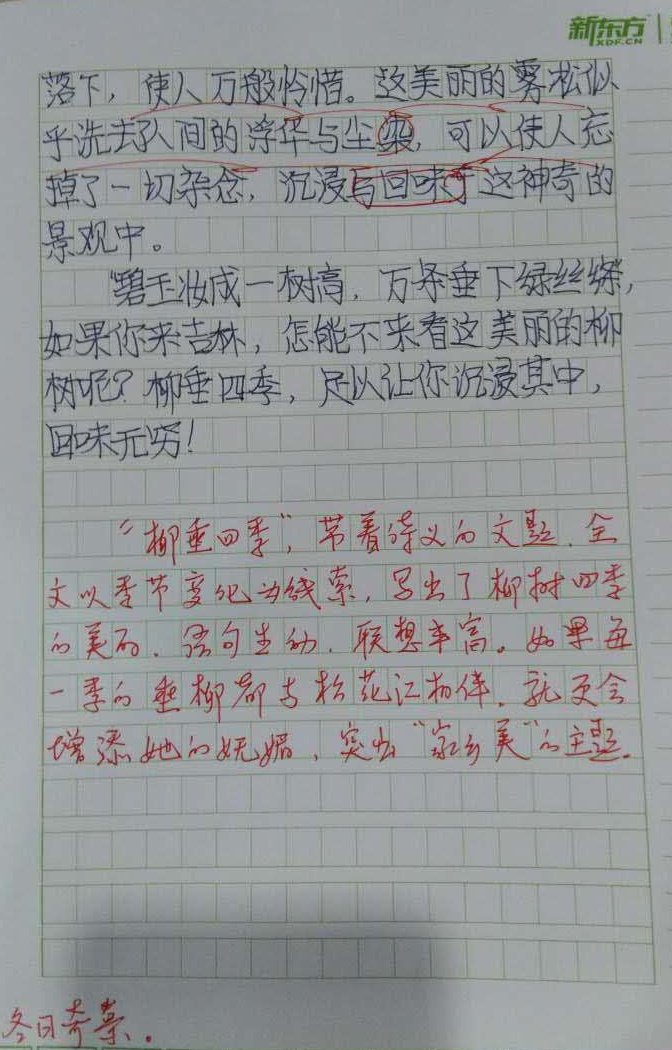 新东方
XDF.CN
落下，使人万般怜惜。这美丽的雾松似
乎洗去人间的浮华与尘染，可以使人忘
掉了一切杂念，沉浸与回味于这神奇的
景观中。
“碧玉妆成一树高，万条垂下绿丝绦，
如果你来吉林，怎能不来看这美丽的柳
树呢？柳垂四季，足以让你沉浸其中，
回味无穷！
“柳垂四季”，带着诗义的文题，全
文以季节变化为线索，写出了柳树四季
的美丽，语句生动，联想丰富。如果每
一季的垂柳都与松花江相伴，就更会
增添她的妩媚，突出“家乡美”的主题。
冬日奇景。